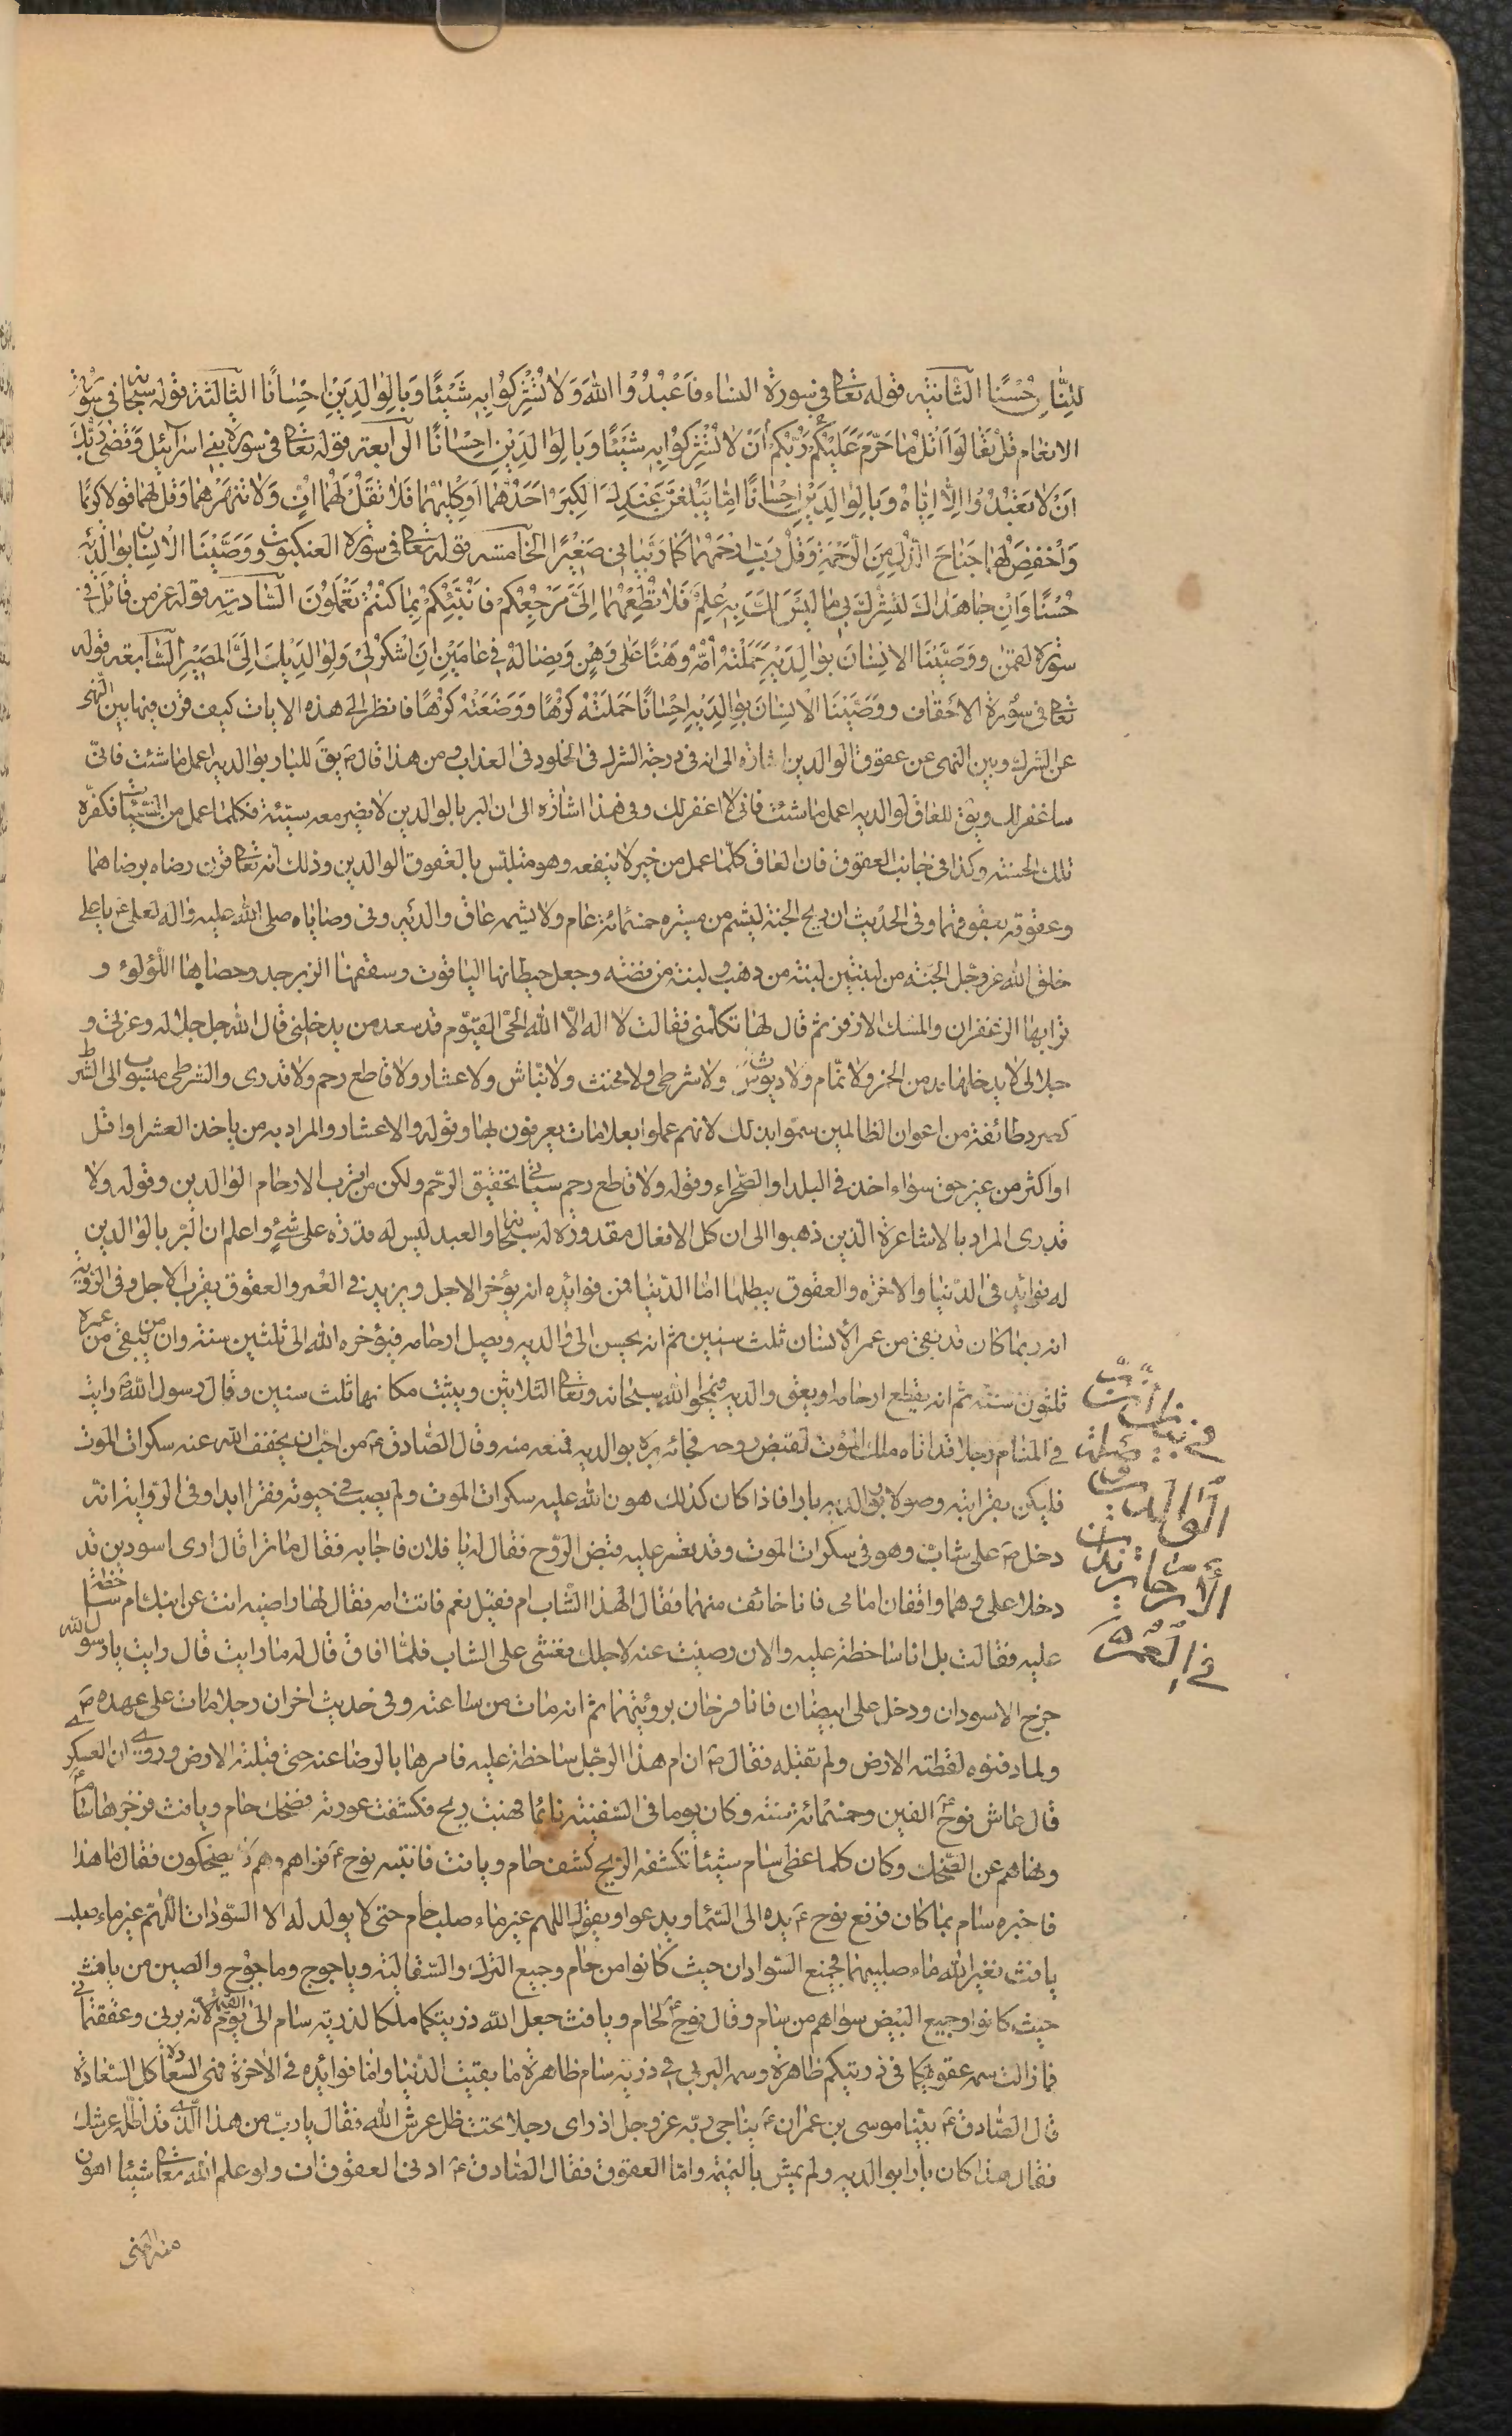 للِنَّاسِ حُسْنًا الثانية قوله تعالى في سورة النساء فَاَعْبُدُوُا اللهَ وَلا تُشْرِكُوُا بِهِ شَيْئًا وَبِالوَالِدَيْنِ اِحْسٰانًا الثالثة قوله سبحانه في سورة
الانعام قُلْ تَعٰالَوَا اَتْلُ مٰا حَرَّمَ عَلَيْكُمْ رَبُّكُمْ أَنْ لا تُشْرِكُوا بِهِ شَيْئًا وَبِالوَالِدَيْنِ اِحْسٰانًا الرابعة قوله تعالى في سورة بني اسرائيل وَقَضىٰ رَبُّكَ
اَنْ لا تَعْبُدُوُا اِلاّٰ اِيّٰاهُ وَبِالوَالِدَيْنِ اِحْسٰانًا اِمّٰا يَبْلُغَنَّ عِنْدَكَ الكِبَرَ اَحَدُهُمٰا اَوْ كِلٰيهُمٰا فَلا تَقُلْ لَهُمٰا افٍّ وَلا تَنْهَرْهُمٰا وَقُلْ لَهُمٰا قَولا كَريمًا
وَاْخْفِضْ لَهُمٰا جَنٰاحَ الذُّلِّ مِنَ الرَّحْمَةِ وَقُلْ رَبِّ ارْحَمْهُمٰا كَمٰا رَبَّيٰاني صَغيرًا الخامسة قوله تعالى في سورة العنكبوت ووَصَّيْنَا الاِنْسٰانَ بوالدَيْهِ
حُسْنًا وَاِنْ جٰاهَدٰاكَ لِتُشْرِكَ بي مٰا لَيْسَ لَكَ بِهِ عِلْمٌ فَلا تُطِعْهُمٰا اِلَىَّ مَرْجِعُكُمْ فَاُنَبِّئُكُمْ بِمٰا كُنْتُمْ تَعْمَلُوُنَ السادسة قوله عز من قائل في
سورة لقمٰن ووَصَّيْنَا الاِنْسٰانَ بوالِدَيْهِ حَمَلَتْهُ اُمُّهُ وَهْنًا عَلىٰ وَهْنٍ وَفِصٰالُهُ فِي عٰامَيْنِ اَنِ اشْكُرْ لي وَلِوٰالِدَيْكَ اِلَىَّ المَصيرُ السابعة قوله
تعالى في سورة الاحقاف ووَصَّيْنَا الاِنْسٰانَ بِوالِدَيْهِ اِحْسٰانًا حَمَلَتْهُ كُرْهًا ووَضَعَتْهُ كُرْهًا فانظر الى هذه الايات كيف قرن فيها بين النهى
عن الشرك وبين النهى عن عقوق الوالدين اشارة الى انه في درجة الشرك في الخلود في العذاب ومن هذا قال ص يق للبار بوالديه اعمل ما شئت فانى
ساغفر لك ويق للعاق لوالديه اعمل ما شئت فانى لا اغفر لك وفي هذا اشارة الى ان البر بالوالدين لا يضر معه سيئة فكلما عمل من السيئات فكفره
تلك الحسنة وكذا في جانب العقوق فان العاق كلما عمل من خير لا ينفعه وهو متلبس بالعقوق الوالدين وذلك انه تعالى قرن رضاه برضاهما
وعقوقه بعقوقهما وفي الحديث ان ريح الجنة ليشم من مسيرة خمسمائة عام ولا يشمه عاق والديه وفي وصاياه صلى الله عليه واله لعلى ع يا على
خلق الله عز وجل الجنة من لبنتين لبنة من ذهب ولبنة من فضة وجعل حيطانها الياقوت وسقفها الزبرجد وحصاها اللؤلؤ و
ترابها الزعفران والمسك الاذفر ثم قال لها تكلمى فقالت لا اله الا الله الحى القيوم قد سعد من يدخلنى قال الله جل جلاله وعزتى و
جلالى لا يدخلها مدمن الخمر ولا نمام ولا ديوث ولا شرطى ولا مخنث ولا نباش ولا عشار ولا قاطع رحم ولا قدرى والشرطى منسوب الى الشرط
كصرد طائفة من اعوان الظالمين سموا بذلك لانهم عملوا بعلامات يعرفون بها وقوله والاعشار والمراد به من ياخذ العشر او اقل
او اكثر من غير حق سواء اخذ في البلد او الصحراء وقوله ولا قاطع رحم سياتى تحقيق الرحم ولكن من اقرب الارحام الوالدين وقوله ولا
قدرى المراد بالاشاعرة الذين ذهبوا الى ان كل الافعال مقدورة له سبحانه والعبد ليس له قدرة على شئ واعلم ان البر بالوالدين
له فوائد في الدنيا والاخرة والعقوق يبطلها اما الدنيا فمن فوائده انه يؤخر الاجل ويزيد في العمر والعقوق يقرب الاجل وفي الرواية
انه ربما كان قد بقى من عمر الانسان ثلث سنين ثم انه يحسن الى والديه ويصل ارحامه فيؤخره الله الى ثلثين سنة وان من يبقى من عمره
ثلثون سنة ثم انه يقطع ارحامه او يعق والديه فيمحوا الله سبحانه وتعالى الثلاثين ويثبت مكانها ثلث سنين وقال رسول الله ص رايت
في المنام رجلا قد اتاه ملك الموت لقبض روحه فجائه بره بوالديه فمنعه منه وقال الصادق ع من احب ان يخفف الله عنه سكرات الموت
فليكن بقرابته وصولا وبوالديه بارا فاذا كان كذلك هون الله عليه سكرات الموت ولم يصب في حيوته فقرا ابدا وفي الرواية انه
دخل ص على شاب وهو في سكرات الموت وقد تعسر عليه قبض الروح فقال له يا فلان فاجابه فقال ما ترا قال ارى اسودين قد
دخلا على وهما واقفان امامى فانا خائف منهما فقال الهذا الشاب ام فقيل نعم فاتت امه فقال لها راضية انت عن ابنك ام ساخطة
عليه فقالت بل انا ساخطة عليه والان رضيت عنه لاجلك فغشى على الشاب فلما افاق قال له ما رايت قال رايت يا رسول الله
خرج الاسودان ودخل على ابيضان فانا فرحان برؤيتهما ثم انه مات من ساعته وفي حديث اخر ان رجلا مات على عهده ص
ولما دفنوه لفظته الارض ولم تقبله فقال ص ان ام هذا الرجل ساخطة عليه فامرها بالرضا عنه حتى قبلته الارض وروى ان العسكرى ع
قال عاش نوح ع الفين وخمسمائة سنة وكان يوما في السفينة نائما فهبت ريح فكشفت عورته فضحك حام ويافث فزجرهما سام
ونهاهم عن الضحك وكان كلما غطى سام شيئا تكشفه الريح كشف حام ويافث فانتبه نوح ع فراهم وهم يضحكون فقال ما هذا
فاخبره سام بما كان فرفع نوح ع يده الى السماء ويدعوا ويقول اللهم غير ماء صلب حام حتى لا يولد له الا السودان اللهم غير ماء صلب
يافث فغير الله ماء صلبيهما فجميع السوادان حيث كانوا من حام وجميع الترك والسقالبة وياجوج وماجوج والصين من يافث
حيث كانوا وجميع البيض سواهم من سام وقال نوح ع لحام ويافث جعل الله ذريتكما ملكا لذرية سام الى يوم القيمة لانه بر بى وعققتمانى
فما زالت سمه عقوقكما في ذريتكم ظاهرة وسمه البر بى في ذرية سام ظاهرة ما بقيت الدنيا واما فوائده في الاخرة فهى السعادة كل السعادة
قال الصادق ع بينا موسى بن عمران ع يناجى ربه عز وجل اذ راى رجلا تحت ظل عرش الله فقال يا رب من هذا الذى قد اظله عرشك
فقال هذا كان بارا بوالديه ولم يمش بالنميمة واما العقوق فقال الصادق ع ادنى العقوق اف ولو علم الله تعالى شيئا اهون
في
صلة
الوالدين
الأرحام تزيد
في العمر
منه لنهى